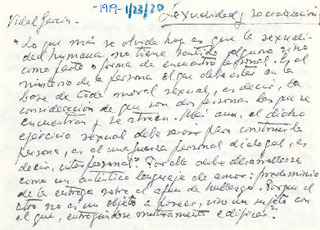 Vidal García -1919- 1/23/20 Sexualidad y socialización
"Lo que más se olvida hoy es que la sexuali-
dad humana no tiene sentido alguno sino
como gesto o forma de encuentro personal. Es el
misterio de la persona el que debe estar en la
base de toda moral sexual, es decir, la
consideración de que son dos personas las que se
encuentran y se atraen. Más aún, el dicho
ejercicio sexual debe servir para construir la
persona, es el una fuerza personal dialogal, es
decir, interpersonal. Por ello debe desarrollarse
como un auténtico lenguaje de amor: predominio
de la entrega sobre el afán de Porque el
otro no es un objeto a poseer, sino un sujeto con
el que, entregándose mutuamente edificar."